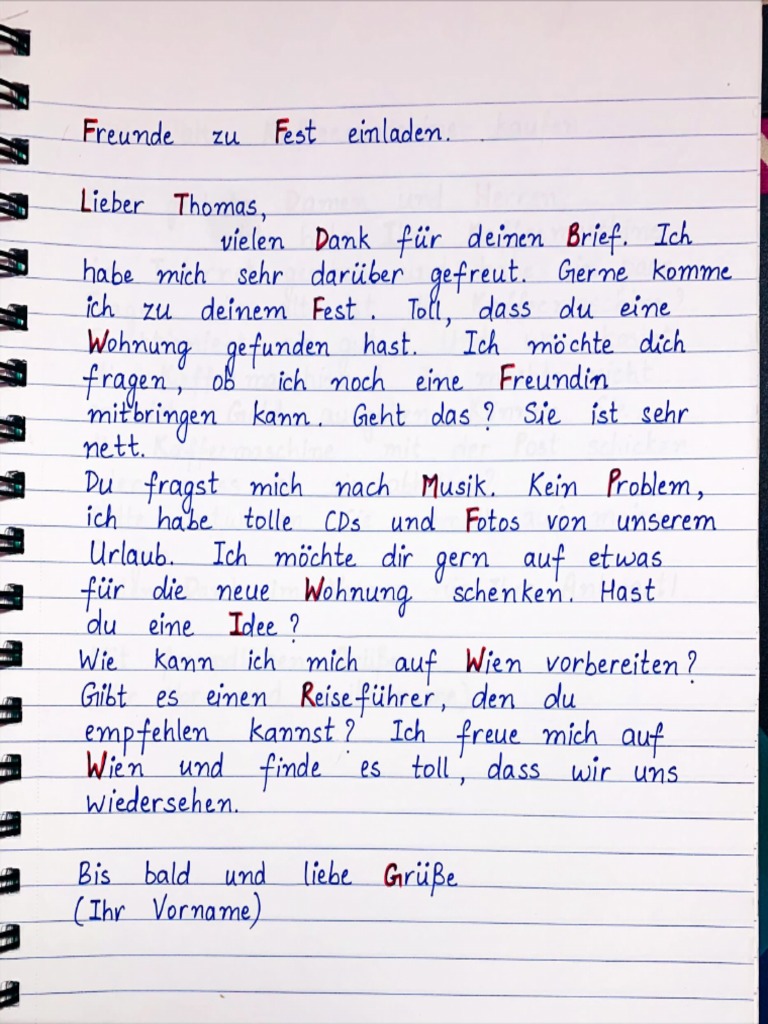 Freunde zu Fest einladen.
Lieber Thomas,
vielen Dank für deinen Brief. Ich
habe mich sehr darüber gefreut. Gerne komme
ich zu deinem Fest. Toll, dass du eine
Wohnung gefunden hast. Ich möchte dich
fragen, ob ich noch eine Freundin
mitbringen kann. Geht das? Sie ist sehr
nett.
Du fragst mich nach Musik. Kein Problem,
ich habe tolle CDs und Fotos von unserem
Urlaub. Ich möchte dir gern auf etwas
für die neue Wohnung schenken. Hast
du eine Idee?
Wie kann ich mich auf Wien vorbereiten?
Gibt es einen Reiseführer, den du
empfehlen kannst? Ich freue mich auf
Wien und finde es toll, dass wir uns
wiedersehen.
Bis bald und liebe Grüße
(Ihr Vorname)